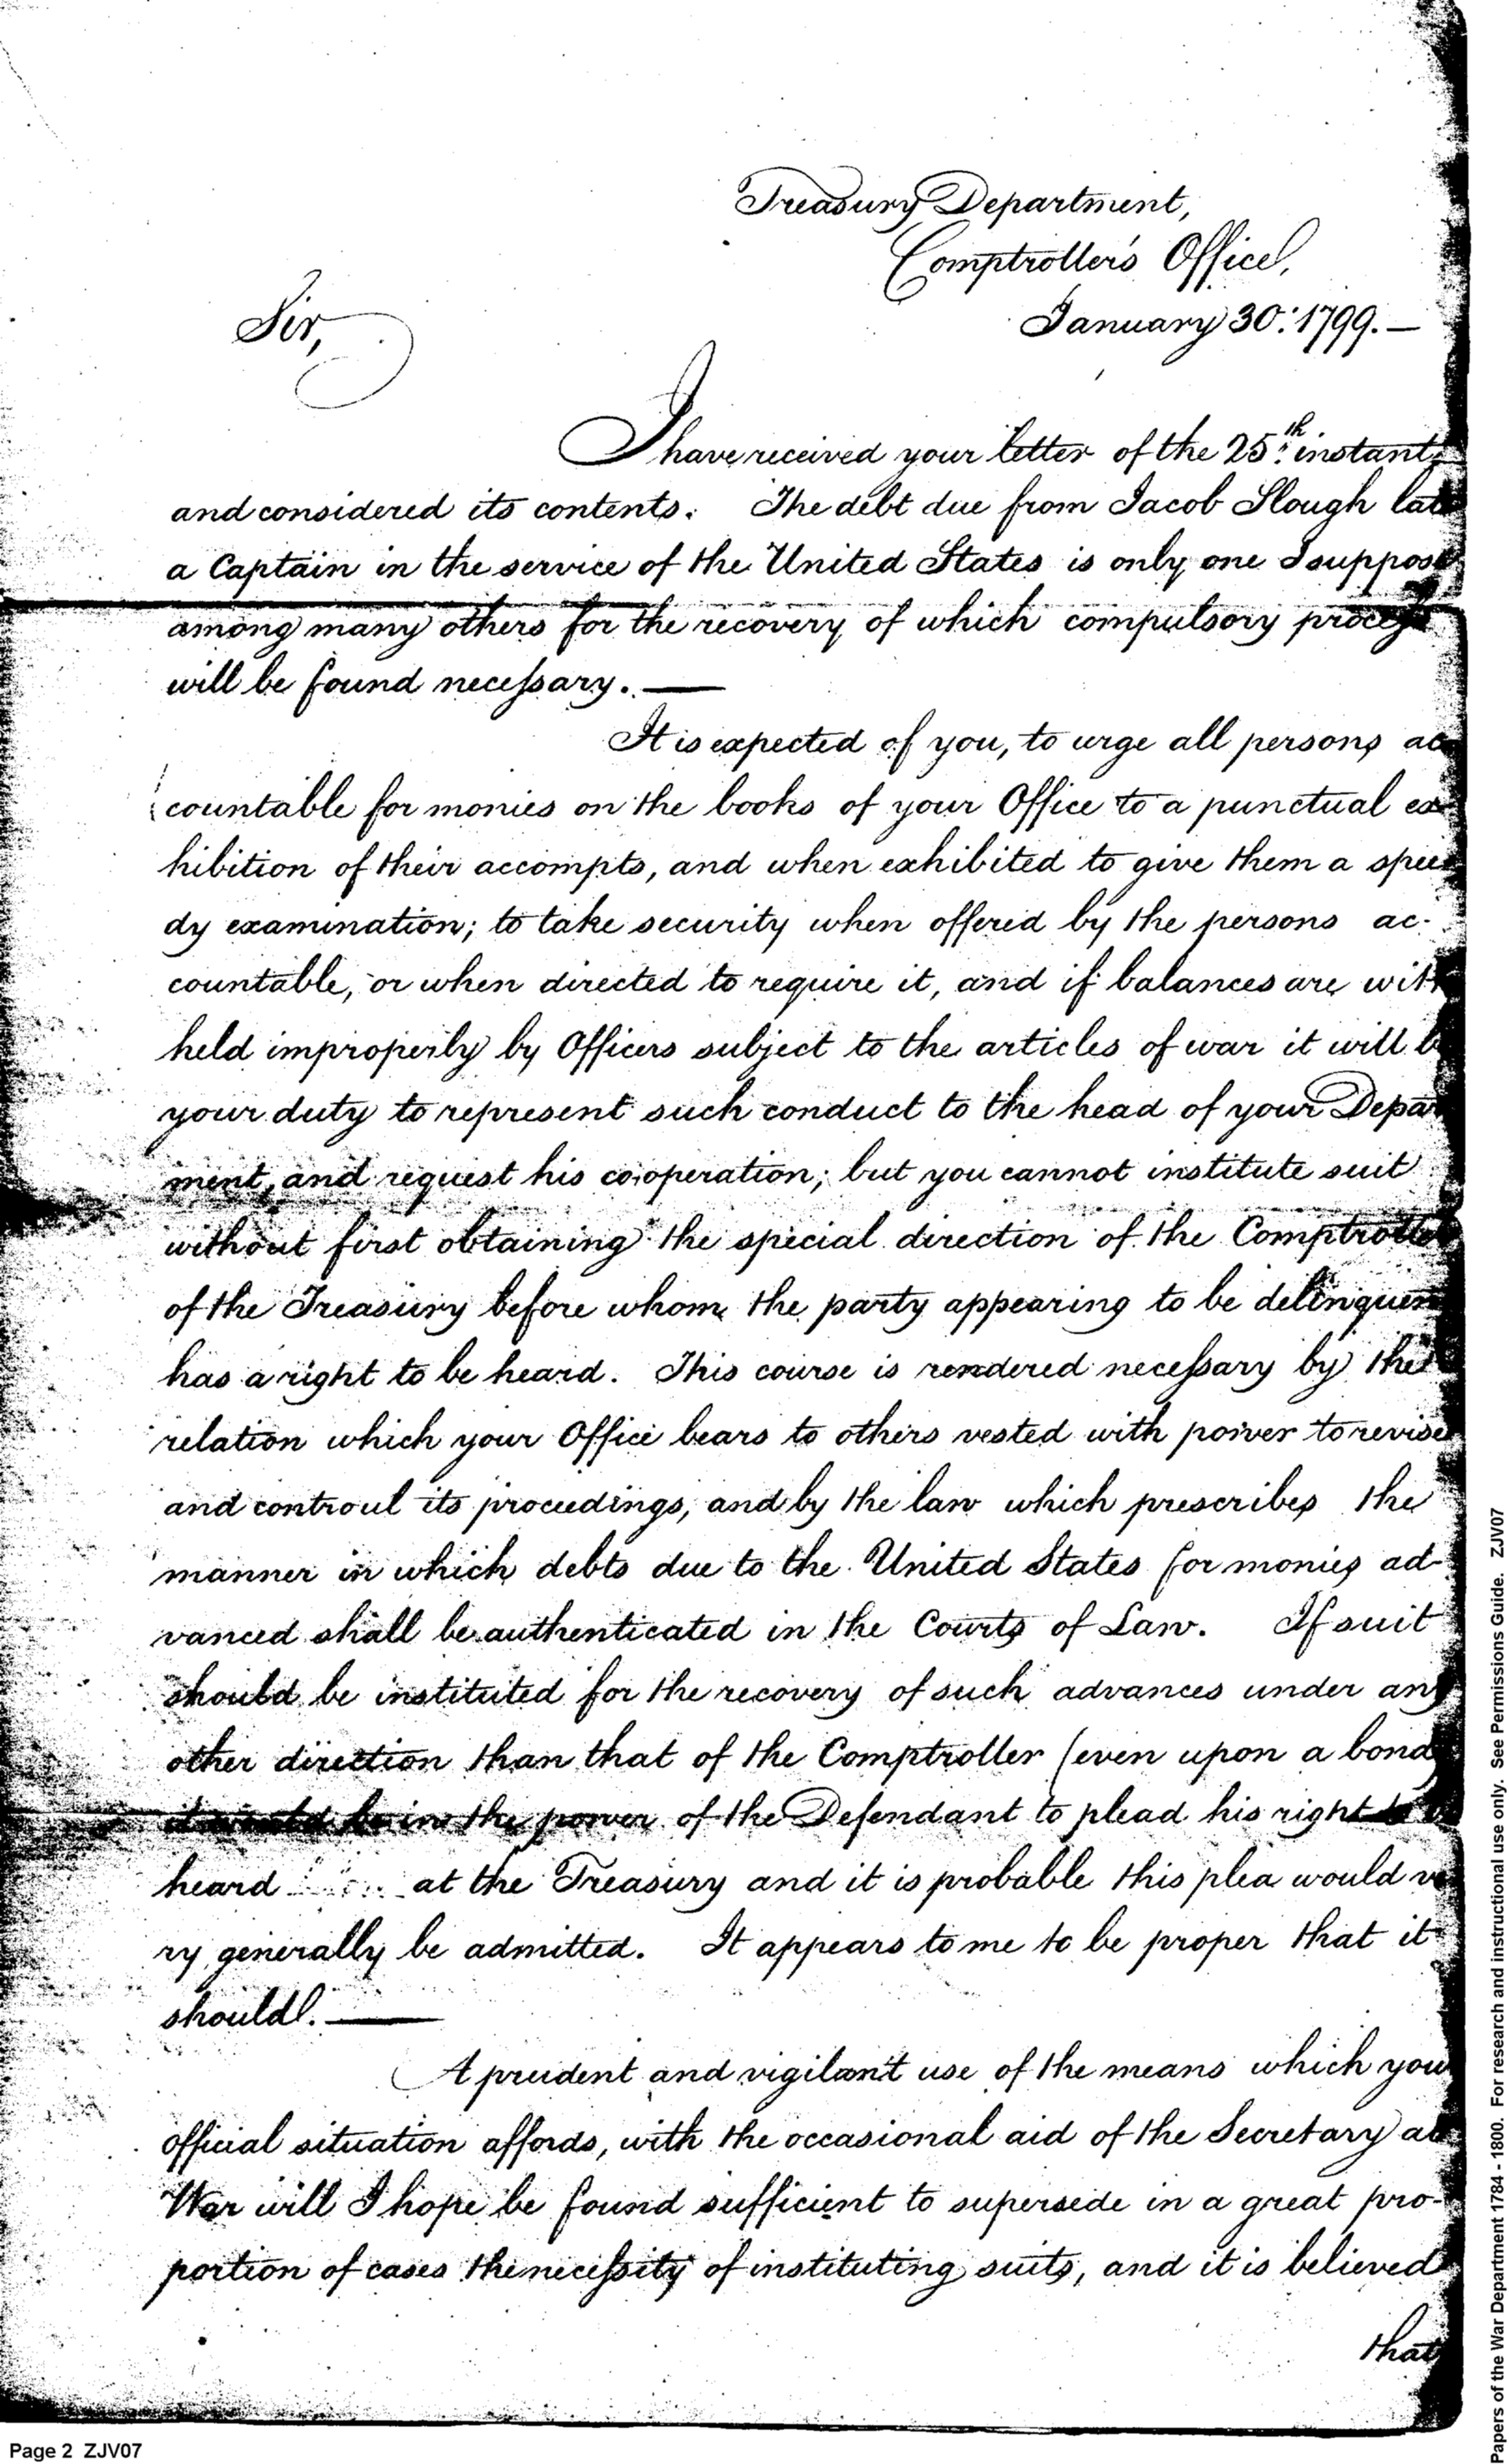 Treasury Department,
Comptroller's Office,
January 30: 1799. —
Sir,
I have received your letter of the 25th instant,
and considered its contents. The debt due from Jacob Slough late
a Captain in the service of the United States is only one I suppose
among many others for the recovery of which compulsory process
will be found necessary. —
It is expected of you, to urge all persons ac
countable for monies on the books of your Office to a punctual ex
hibition of their accompts, and when exhibited to give them a spee
dy examination; to take security when offered by the persons ac-
countable, or when directed to require it, and if balances are with
held improperly by Officers subject to the articles of war it will be
your duty to represent such conduct to the head of your Depart
ment, and request his cooperation; but you cannot institute suit
without first obtaining the special direction of the Comptroller
of the Treasury before whom the party appearing to be delinquent
has a right to be heard. This course is rendered necessary by the
relation which your Office bears to others vested with power to revise
and controul its proceedings, and by the law which prescribes the
manner in which debts due to the United States for monies ad-
vanced shall be authenticated in the Courts of Law. If suit
should be instituted for the recovery of such advances under any
other direction than that of the Comptroller (even upon a bond
it would be in the power of the Defendant to plead his right to
heard at the Treasury and it is probable this plea would ve
ry generally be admitted. It appears to me to be proper that it
should. —
A prudent and vigilant use of the means which your
official situation affords, with the occasional aid of the Secretary at
War will I hope be found sufficient to supersede in a great pro-
portion of cases the necessity of instituting suits, and it is believed
that
Page 2 ZJV07
Papers of the War Department 1784 - 1800. For research and instructional use only. See Permissions Guide. ZJV07